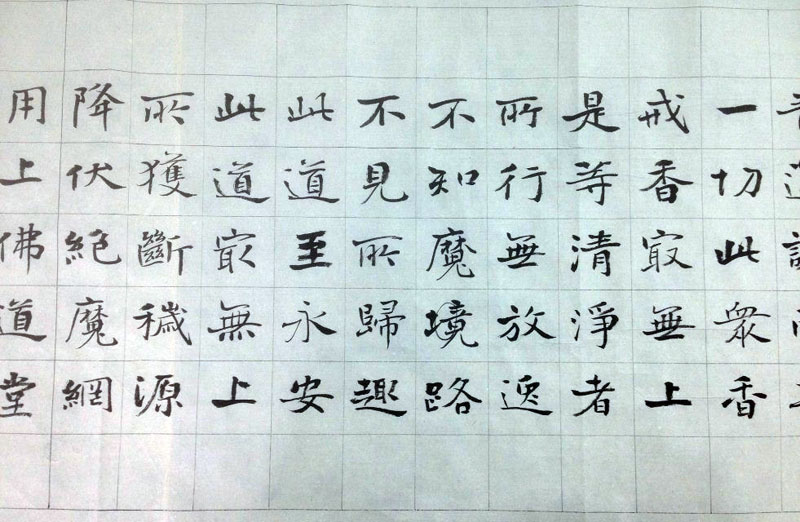 一切此衆香
戒香㝡無上
是等清淨者
所行無放逸
不知魔境路
不見所歸趣
此道至永安
此道㝡無上
所獲斷穢源
降伏絶魔網
用上佛道堂